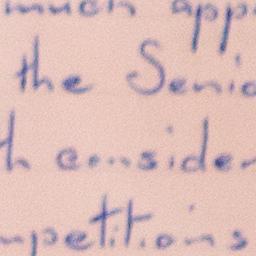 much app
the Senio
h consider
mpetitions